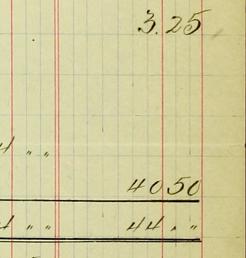 3.25
4 " "
40 50
4 " " 44 " "